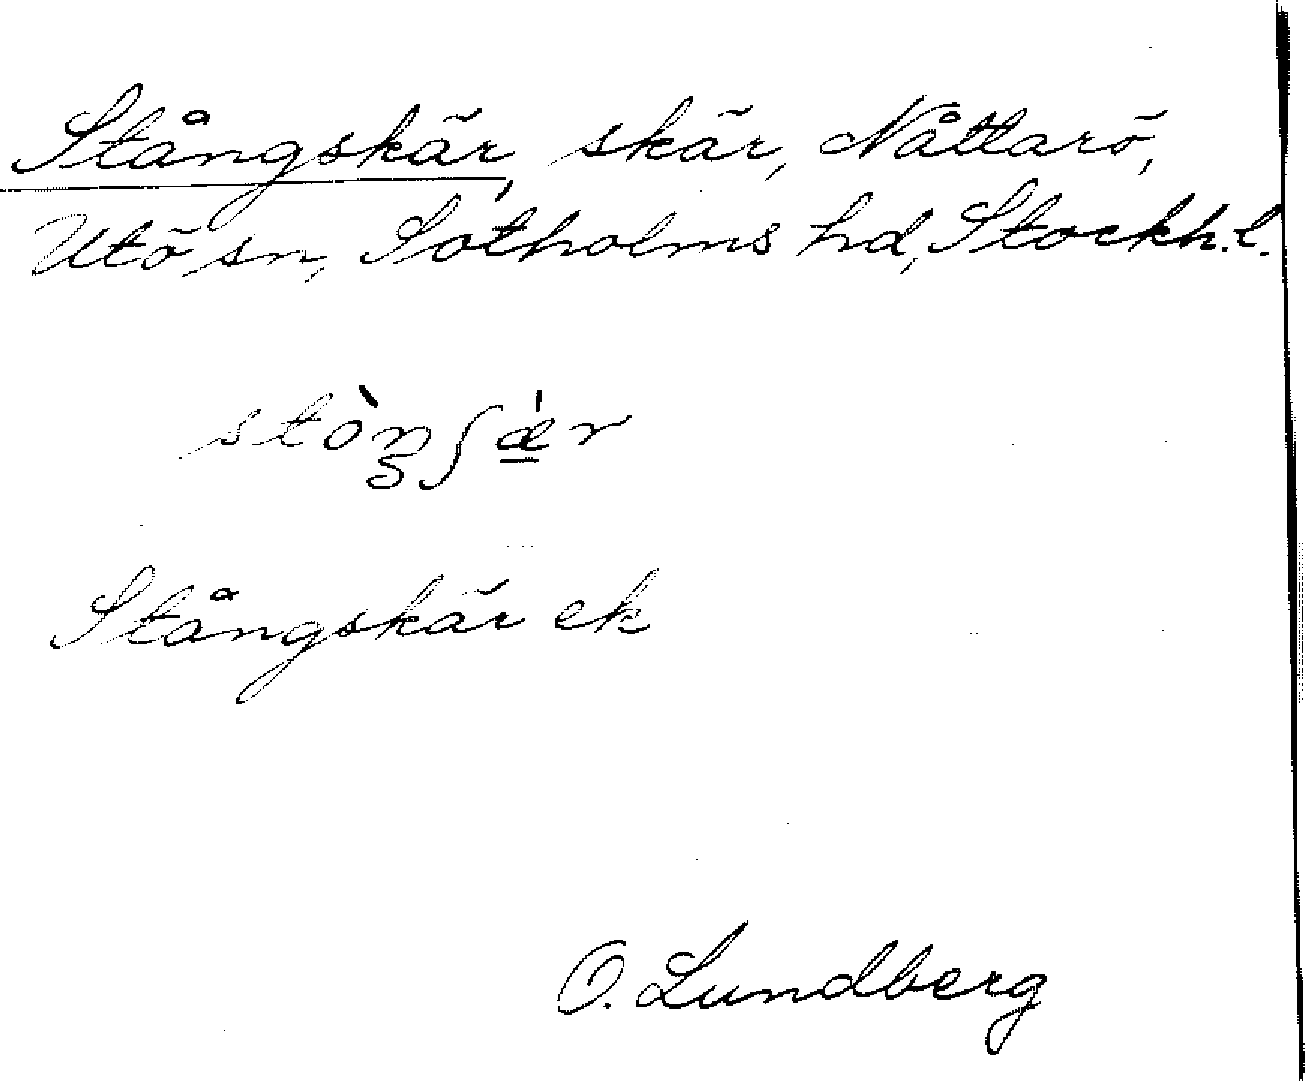 Stångskär, skär, Nåttarö,
Utö sn, Sotholms hd, Stockh. l.
stòŋʃǽ̱r
Stångskär ek
O. Lundberg